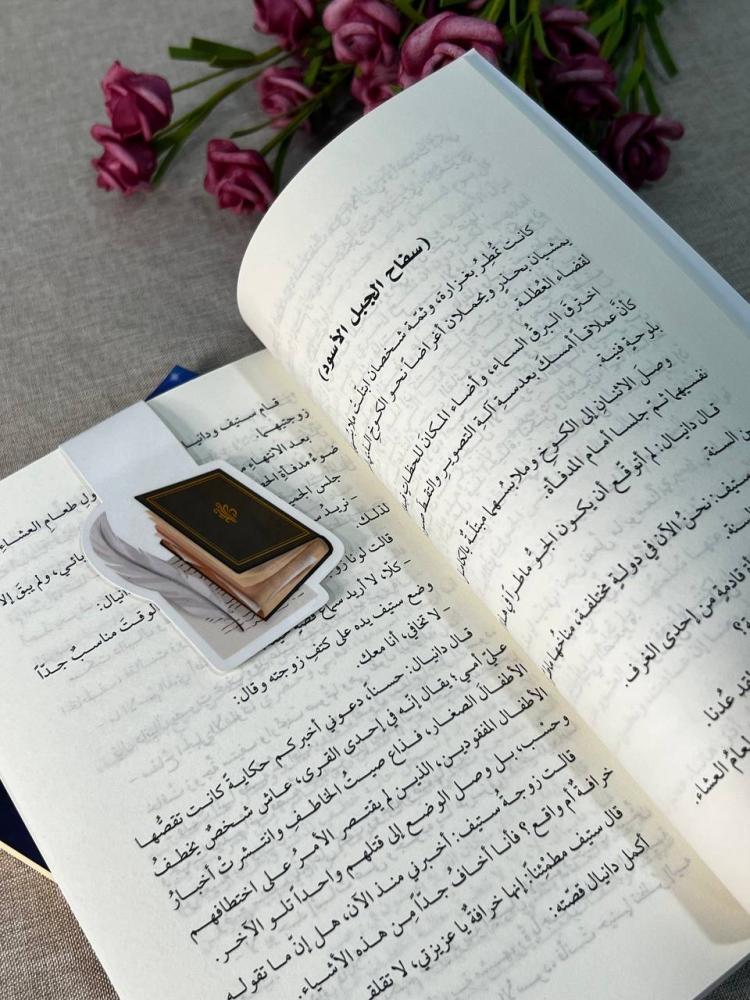 (سفاح الجبل الأسود)
كانت تُمطرُ بغزارة، وثمّة شخصان ابتلّتْ
يمشيان بحذرٍ ويحملان أغراضاً نحو الكوخ
لقضاء العُطلة.
اخترقَ البرقُ السماء، وأضاء المكانَ للحظات
كأنَّ عملاقاً أمسكَ بعدسةِ آلـة التصوير والتقط
بلوحةٍ فنية.
وصلَ الاثنانِ إلى الكوخِ وملابسُهما مبتلّةٌ بالكامل
نفسيهما ثمّ جلسا أمام المدفأة.
قال دانيال: لم أتوقع أن يكون الجوُّ ماطراً
من السنة.
ستيف: نحنُ الآن في دولةٍ مختلفة، مناخُها
قادمةٍ من إحدى الغرف.
عُدنا.
طعامُ العشاء.
قام ستيف ودانيال
زوجتيهما.
ول طعامِ العشاءِ
بعد الانتهاء
ضوء مدفأة
جلس
- نريدُ
لذلك.
ولم يبقَ
دانيال:
الوقتَ مناسبٌ جداً
قالت لونا
- كلّا، لا أريد سماعَ
وضع ستيف يده على كتفِ زوجته وقال:
- لا تخافي، أنا معك.
قال دانيال: حسناً، دعوني أخبركم حكايةً كانت تقصُّها
عليّ أمي؛ يقال إنّه في إحدى القرى، عاش شخصٌ يخطفُ
الأطفال الصغار، فذاع صيتُ الخاطف وانتشرتْ أخبارُ
الأطفال المفقودين، الذين لم يقتصر الأمرُ على اختطافهم
وحسْب، بل وصل الوضع إلى قتلهم واحداً تلو الآخر.
قالت زوجةُ ستيف: أخبرني منذ الآن، هل إنّ ما تقوله
خرافةٌ أم واقع؟ فأنا أخافُ جداً من هذه الأشياء.
قال ستيف مطمئِناً: إنها خرافةٌ يا عزيزتي، لا تقلقي
أكمل دانيال قصّته: